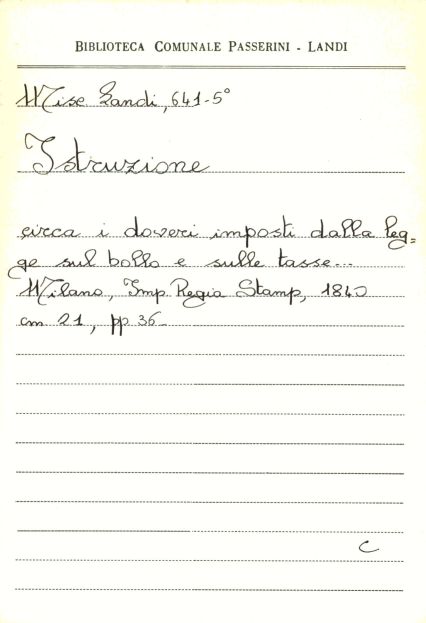 BIBLIOTECA COMUNALE PASSERINI - LANDI
Misc. Landi, 641-5°
Istruzione
circa i doveri imposti dalla leg=
ge sul bollo e sulle tasse...
Milano, Imp. Regia Stamp, 1840
cm. 21, pp 36
C